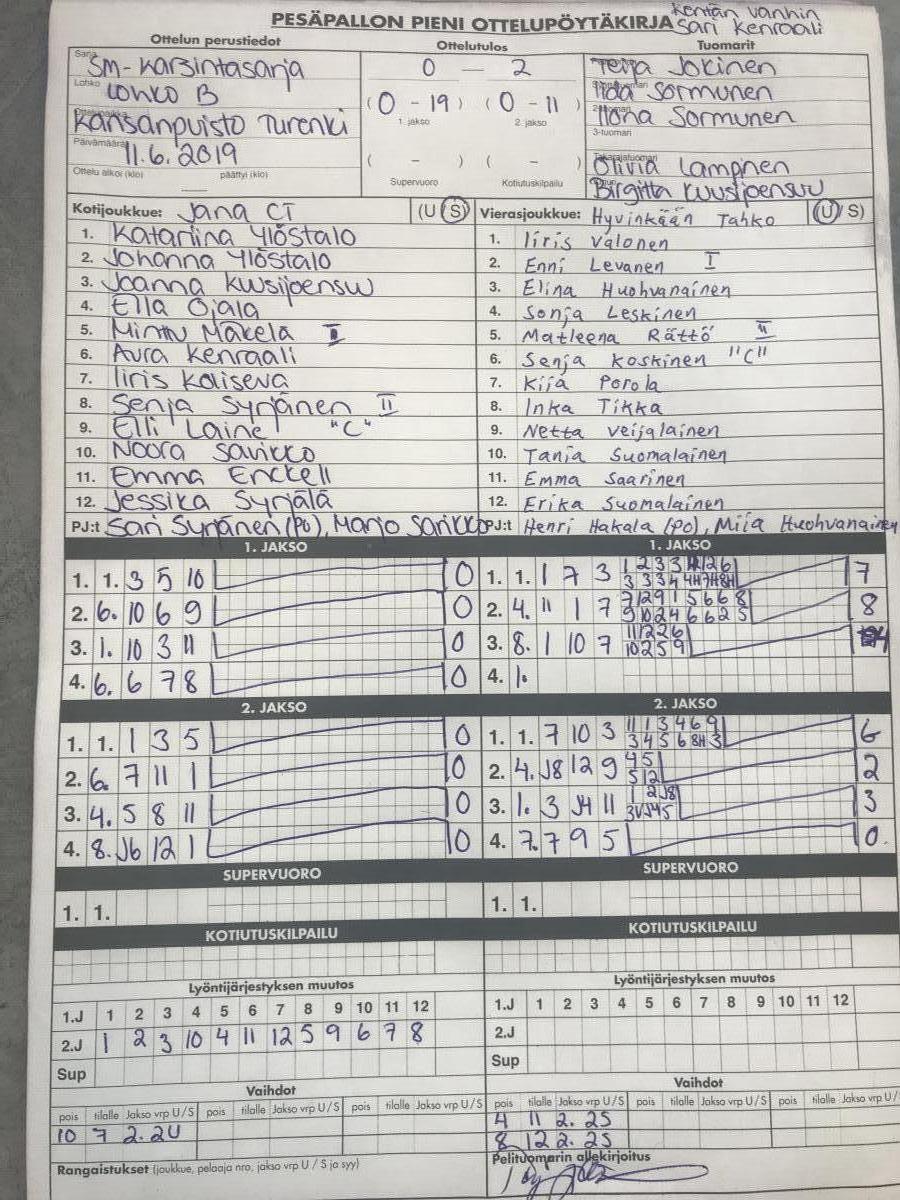 Kentän vanhin
PESÄPALLON PIENI OTTELUPÖYTÄKIRJA Sari Kenraali
Ottelun perustiedot Ottelutulos Tuomarit
Sarja SM-karsintasarja 0 – 2 Teija Jokinen
Lohko Lohko B (0 - 19) (0 - 11) Iida Sormunen
1. jakso 2. jakso
Kansanpuisto Turenki 2-tuomari Ilona Sormunen
3-tuomari
Päivämäärä 11.6.2019 ( - ) ( - ) Takarajatuomari Olivia Lampinen
Ottelu alkoi (klo) päättyi (klo) Supervuoro Kotiutuskilpailu Birgitta Kuusijoensuu
Kotijoukkue: Jana CT (U S) Vierasjoukkue: Hyvinkään Tahko (U S)
1. Katariina Ylöstalo 1. Iiris Valonen
2. Johanna Ylöstalo 2. Enni Levanen I
3. Joanna Kuusijoensuu 3. Elina Huohvanainen
4. Ella Ojala 4. Sonja Leskinen
5. Minttu Mäkelä II 5. Matleena Rättö II
6. Aura Kenraali 6. Senja Koskinen "C"
7. Iiris Kaiseva 7. Kiia Porola
8. Senja Syrjänen II 8. Inka Tikka
9. Elli Laine "C" 9. Netta Veijalainen
10. Noora Sarikko 10. Tania Suomalainen
11. Emma Enckell 11. Emma Saarinen
12. Jessika Syrjälä 12. Erika Suomalainen
PJ:t Sari Syrjänen (PO), Marjo Sarikko PJ:t Henri Hakala (PO), Miia Huohvanainen
1. JAKSO 1. JAKSO
1. 1. 3 5 10 0 1. 1. 1 7 3 7
2. 6. 10 6 9 0 2. 4. 11 1 7 8
3. 1. 10 3 11 0 3. 8. 1 10 7 11 2 2 6 10 2 5 9 4
4. 6. 6 7 8 0 4. 1.
2. JAKSO 2. JAKSO
1. 1. 1 3 5 0 1. 1. 7 10 3 11 1 3 4 6 9 3 4 5 6 8H 3 6
2. 6. 7 11 1 0 2. 4. J8 12 9 4 5 5 12 2
3. 4. 5 8 11 0 3. 1. 3 J4 11 1 2 J8 3
4. 8. J6 12 1 0 4. 7. 7 9 5 0.
SUPERVUORO SUPERVUORO
1. 1. 1. 1.
KOTIUTUSKILPAILU KOTIUTUSKILPAILU
Lyöntijärjestyksen muutos Lyöntijärjestyksen muutos
1.J 1 2 3 4 5 6 7 8 9 10 11 12 1.J 1 2 3 4 5 6 7 8 9 10 11 12
2.J 1 2 3 10 4 11 12 5 9 6 7 8 2.J
Sup Sup
Vaihdot Vaihdot
pois tilalle Jakso vrp U/S pois tilalle Jakso vrp U/S pois tilalle Jakso vrp U/S pois tilalle Jakso vrp U/S pois tilalle Jakso vrp U/S pois tilalle Jakso vrp U/
10 7 2. 2U 4 11 2. 2S
8 12 2. 2S
Rangaistukset (joukkue, pelaaja nro, jakso vrp U / S ja syy) Pelituomarin allekirjoitus